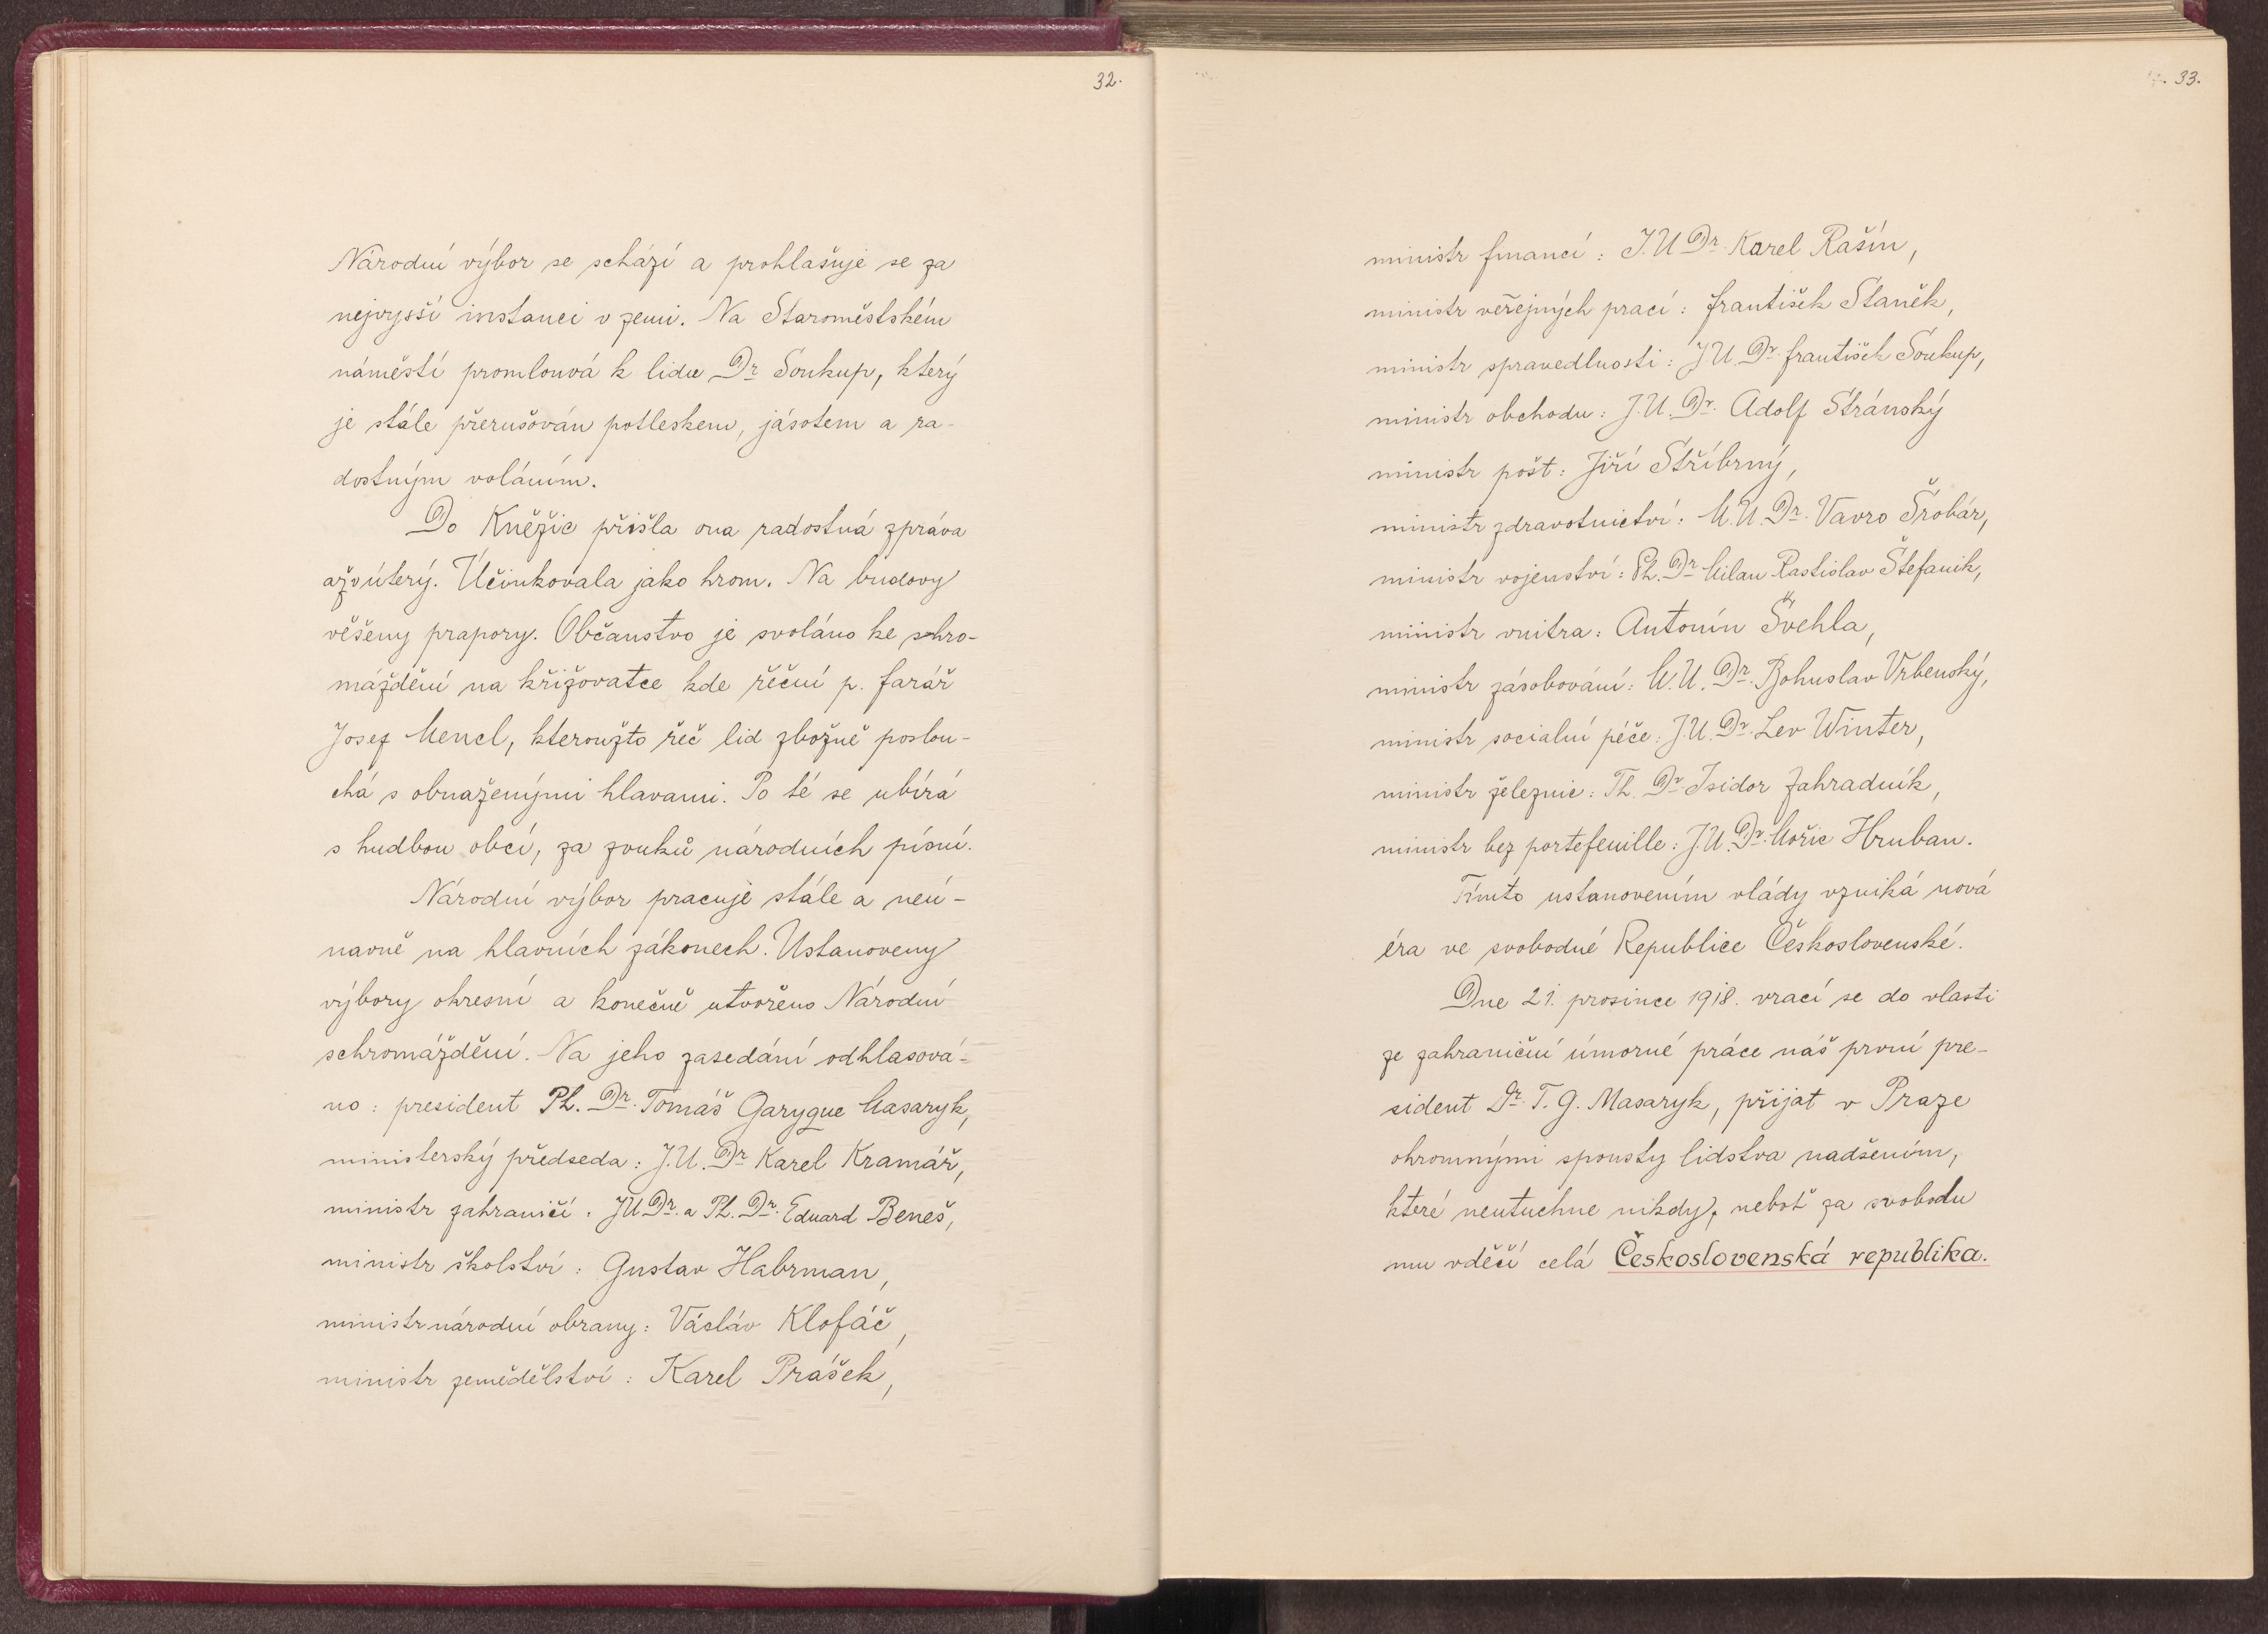 32.
Národní výbor se schází a prohlašuje se za
nejvyšší instanci v zemi. Na Staroměstském
náměstí promlouvá k lidu Dr Soukup, který
je stále přerušován potleskem, jásotem a ra-
dostným voláním.
Do Kněžic přišla ona radostná zpráva
až v úterý. Účinkovala jako hrom. Na budovy
věšeny prapory. Občanstvo je svoláno ke schro-
máždění na křižovatce kde řeční p. farář
Josef Mencl, kteroužto řeč lid zbožně poslou-
chá s obnaženými hlavami. Po té se ubírá
s hudbou obcí, za zvuků národních písní.
Národní výbor pracuje stále a neú-
navně na hlavních zákonech. Ustanoveny
výbory okresní a konečně utvořeno Národní
schromáždění. Na jeho zasedání odhlasová-
no: president Ph. Dr. Tomáš Garygue Masaryk,
ministerský předseda: J.U. Dr Karel Kramář,
ministr zahraničí: JUDr. a Ph. Dr. Eduard Beneš,
ministr školství: Gustav Habrman,
ministr národní obrany: Václav Klofáč,
ministr zemědělství: Karel Prášek,
33.
ministr financí: J.U Dr. Karel Rašín,
ministr veřejných prací: František Staněk,
ministr spravedlnosti: J U. Dr. František Soukup,
ministr obchodu: J.U. Dr. Adolf Stránský
ministr pošt: Jiří Stříbrný,
ministr zdravotnictví: M.U. Dr. Vavro Šrobár,
ministr vojenství: Ph. Dr Milan Rastislav Štefanik,
ministr vnitra: Antonín Švehla,
ministr zásobování: M.U. Dr. Bohuslav Vrbenský,
ministr socialní péče: J.U. Dr. Lev Winter,
ministr železnic: Th. Dr. Isidor Zahradník,
ministr bez portefeuille: J.U. Dr. Mořic Hruban.
Tímto ustanovením vlády vzniká nová
éra ve svobodné Republice Československé.
Dne 21. prosince 1918. vrací se do vlasti
ze zahraniční úmorné práce náš první pre-
sident Dr. T. G. Masaryk, přijat v Praze
ohromnými spousty lidstva nadšením,
které neutuchne nikdy, neboť za svobodu
mu vděčí celá Československá republika.